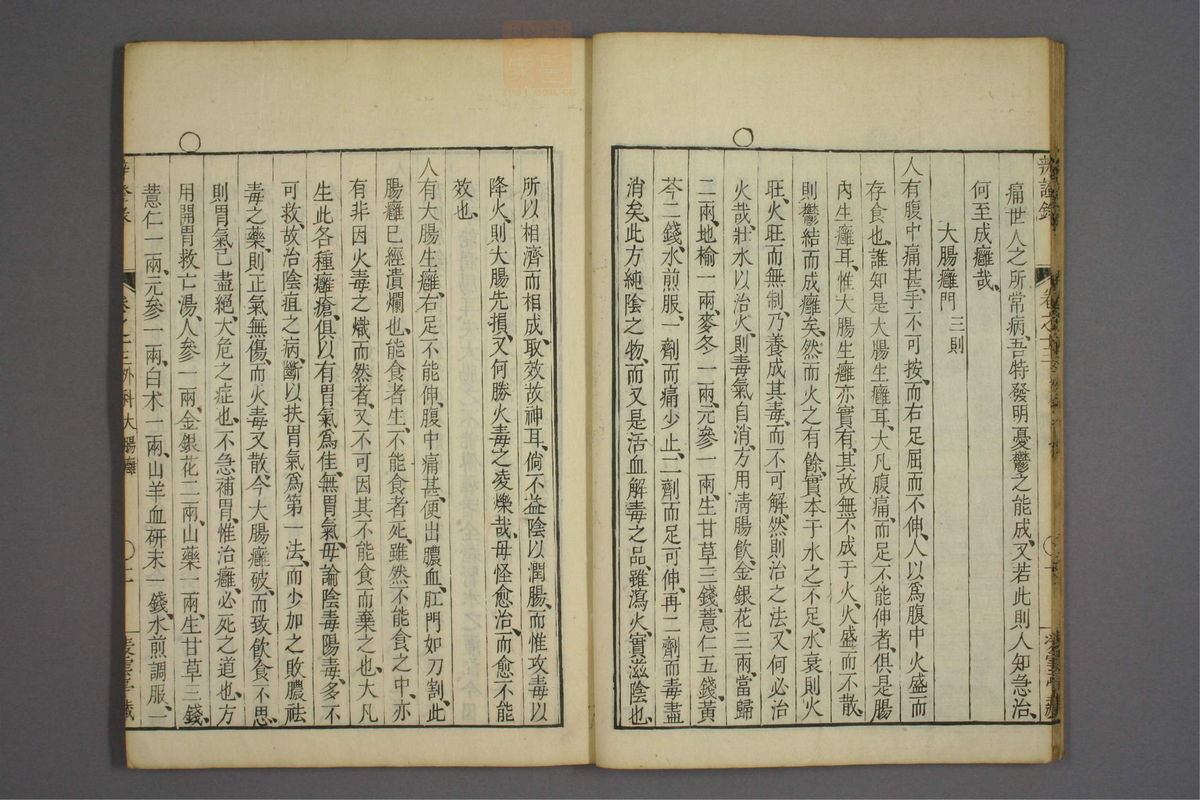 辨證錄
卷之十三
痛世人之所常病、吾特發明憂鬱之能成、又若此則人知急治、
何至成癰哉、
大腸癰門 三則
人有腹中痛甚、手不可按、而右足屈而不伸、人以爲腹中火盛而
存食也、誰知是大腸生癰耳、大凡腹痛、而足不能伸者、俱是腸
內生癰耳、惟大腸生癰亦實有其故、無不成于火、火盛而不散、
則鬱結而成癰矣、然而火之有餘、實本于水之不足、水衰則火
旺、火旺而無制、乃養成其毒、而不可解、然則治之法、又何必治
火哉、壯水以治火、則毒氣自消、方用淸腸飲、金銀花三兩、當歸
二兩、地榆一兩、麥冬一兩、元參一兩、生甘草三錢、薏仁五錢、黃
芩二錢、水煎服、一劑而痛少止、二劑而足可伸、再二劑而毒盡
消矣、此方純陰之物、而又是活血解毒之品、雖瀉火、實滋陰也、
所以相濟而相成、取效故神耳、倘不益陰以潤腸、而惟攻毒以
降火、則大腸先損、又何勝火毒之凌爍哉、毋怪愈治、而愈不能
效也、
人有大腸生癰、右足不能伸、腹中痛甚、便出膿血、肛門如刀割、此
腸癰已經潰爛也、能食者生、不能食者死、雖然不能食之中、亦
有非因火毒之熾而然者、又不可因其不能食而棄之也、大凡
生此各種癰瘡、俱以有胃氣爲佳、無胃氣、毋論陰毒陽毒、多不
可救、故治陰疽之病、斷以扶胃氣爲第一法、而少加之敗膿祛
毒之藥、則正氣無傷、而火毒又散、今大腸癰破、而致飲食不思、
則胃氣已盡絕、大危之症也、不急補胃、惟治癰、必死之道也、方
用開胃救亡湯、人參一兩、金銀花二兩、山藥一兩、生甘草三錢、
薏仁一兩、元參一兩、白朮一兩、山羊血研末一錢、水煎調服、一
卷之十三外科大腸癰